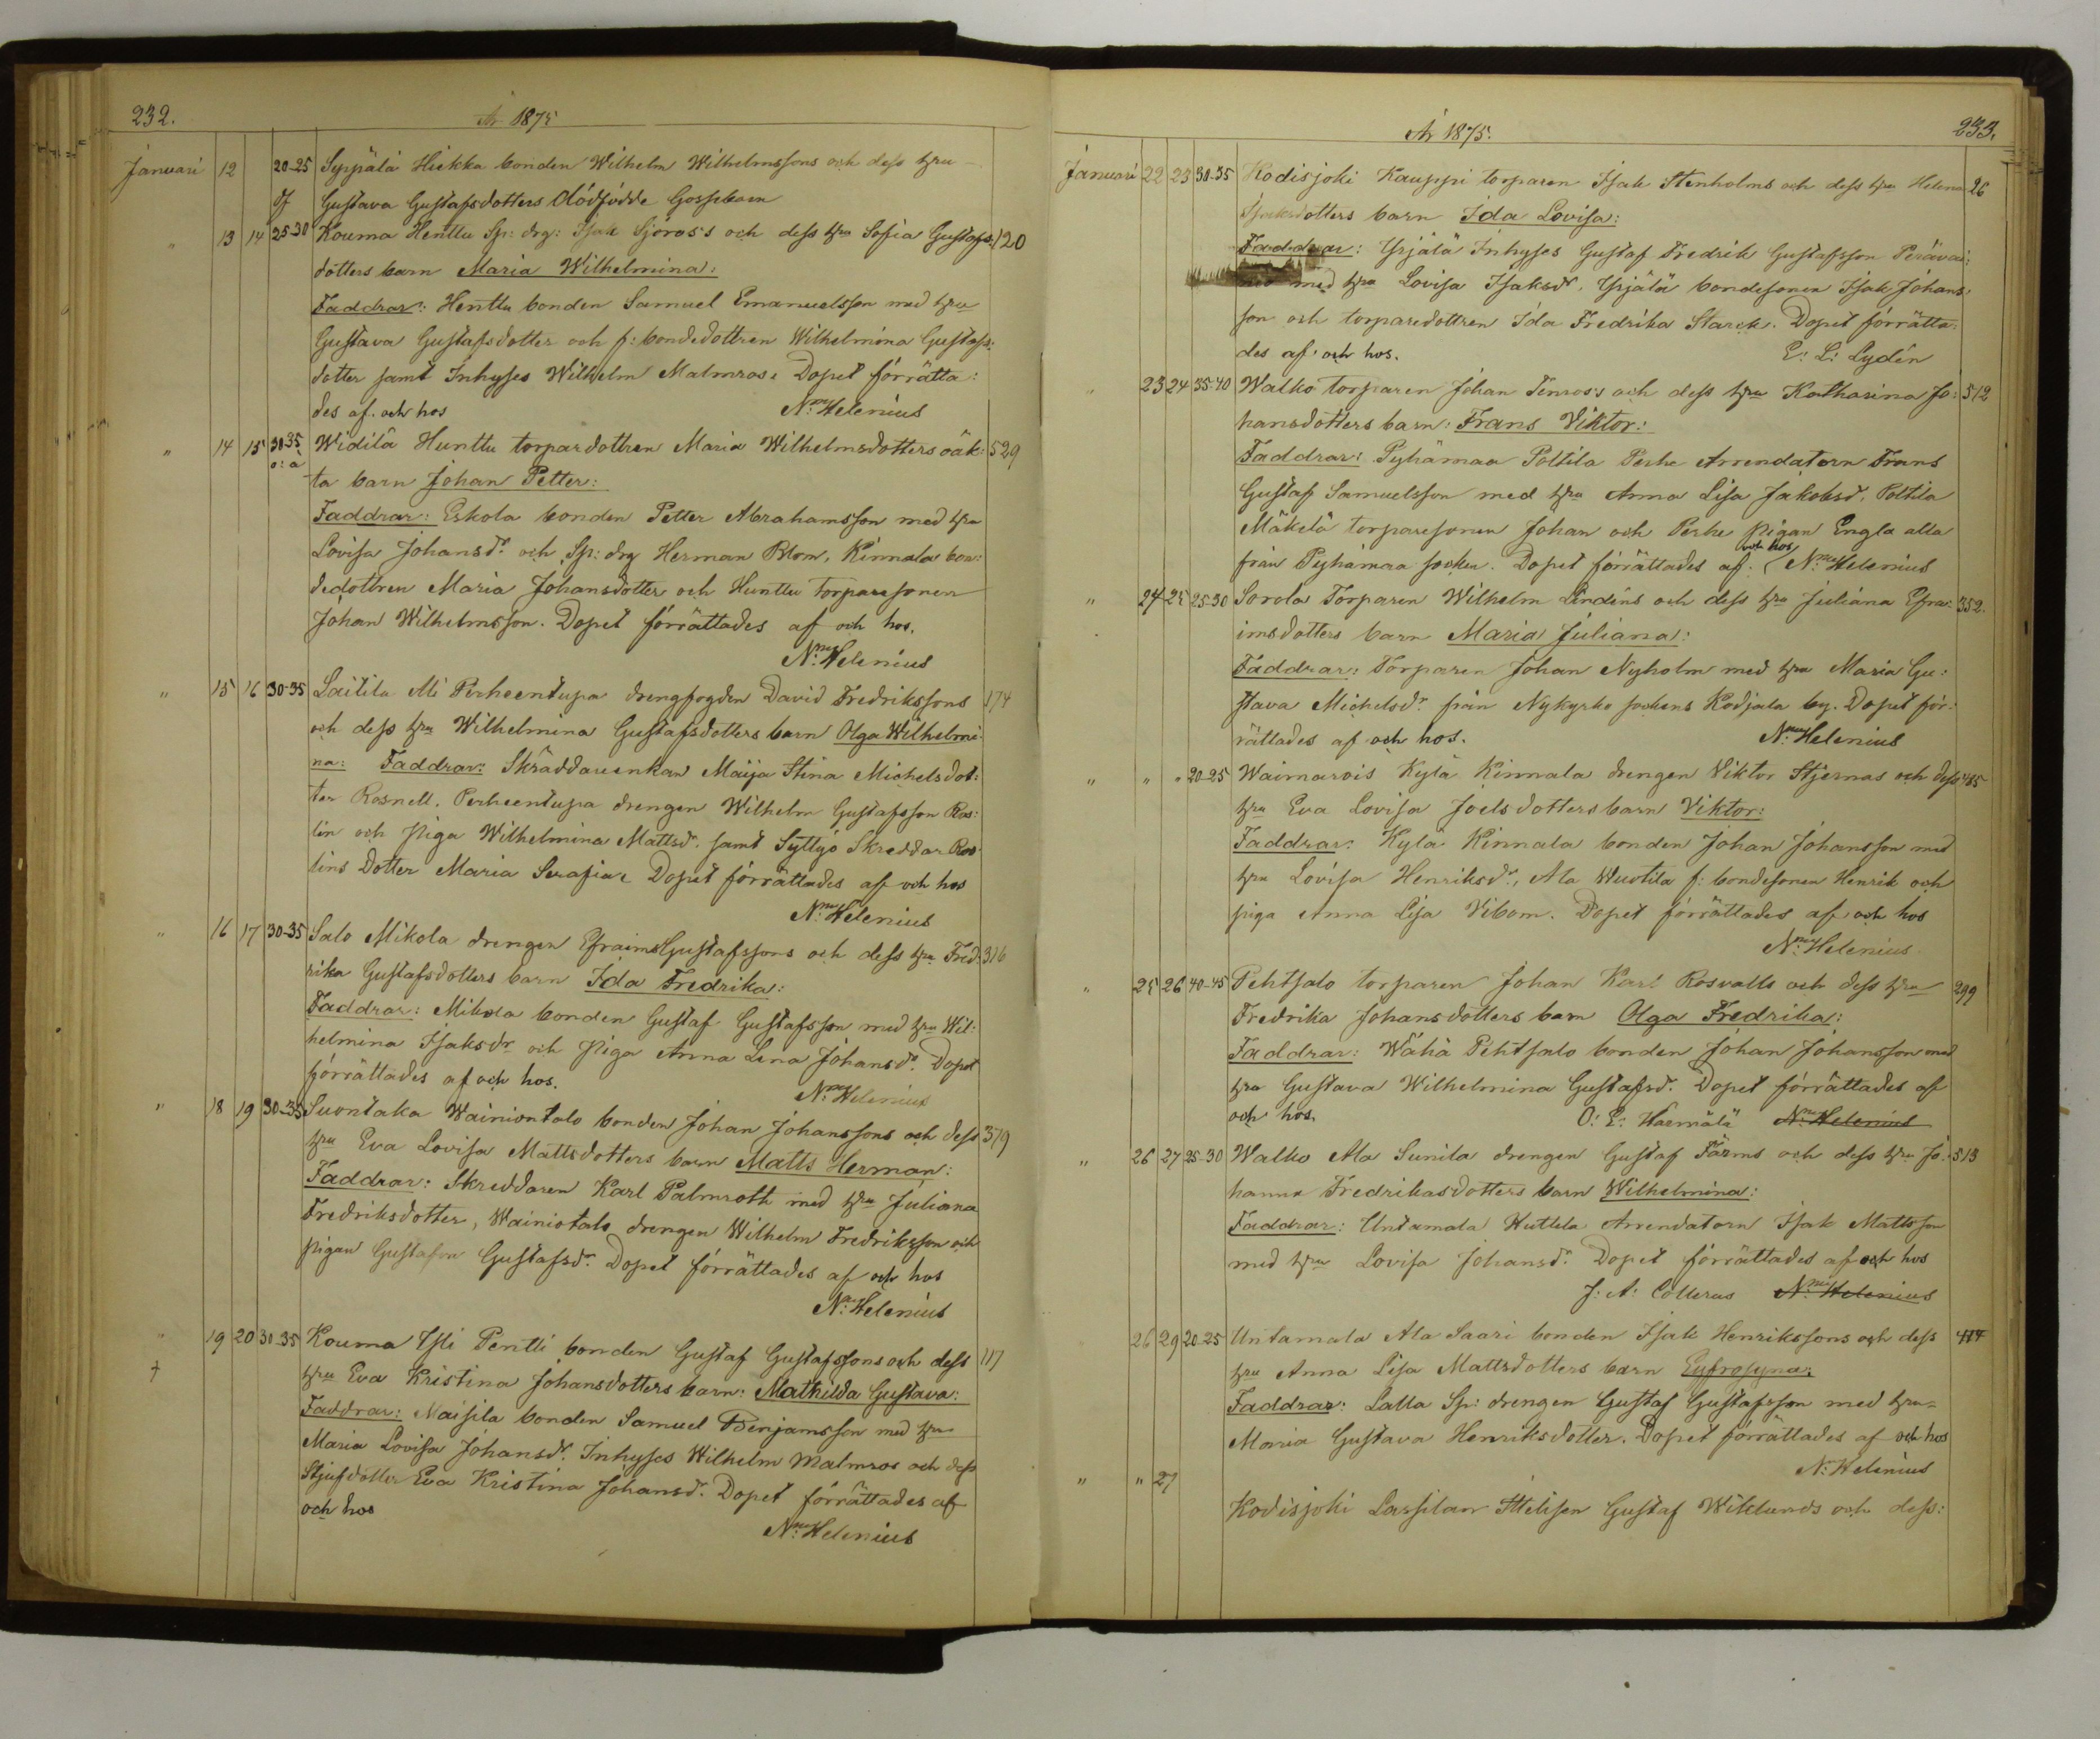 232.
År 1875
Januari 12 20-25 Syppälä Hiekka bonden Wilhelm Wilhelmssons och dess hru
Gustava Gustafsdotters dödfödde Gossebarn
" 13 14 25-30 Kouma Henttu Sp: drg: Isak Sjöros's och dess hru Sofia Gustafs: 120
dotters barn Maria Wilhelmina:
Faddrar: Henttu bonden Samuel Emanuelsson med hru
Gustava Gustafsdotter och f: bondedottren Wilhelmina Gustafs:
dotter samt Inhyses Wilhelm Malmros. Dopet förrätta:
des af. och hos Nme Helenius
" 14 15 30-35 o: ä Widilä Hunttu torpardottren Maria Wilhelmsdotters oäk: 529
ta barn Johan Petter:
Faddrar: Eskola bonden Petter Abrahamsson med hru
Lovisa Johansdr. och Sp: drg Herman Blom, Kinnala bon:
dedottren Maria Johansdotter och Hunttu torparesonen
Johan Wilhelmsson. Dopet förrättades af och hos.
Nme Helenius
" 15 16 30-35 Laitila Ali Perheentupa drengfogden David Fredrikssons 174
och dess hru Wilhelmina Gustafsdotters barn Olga Wilhelmi
na: Faddrar: Skräddareenkan Maija Stina Michelsdot:
ter Rosnell. Perheentupa drengen Wilhelm Gustafsson Ros:
lin och Piga Wilhelmina Mattsd. samt Syttyö Skreddar Ros
lins Dotter Maria Serafia. Dopet förrättades af och hos
Nme Helenius
" 16 17 30-35 Salo Mikola drengen Efraims Gustafssons och dess hru Fred: 316
rika Gustafsdotters barn Ida Fredrika:
Faddrar: Mikola bonden Gustaf Gustafsson med hru Wil:
helmina Isaksdr och Piga Anna Lena Johansdr. Dopet
förrättades af och hos. Nme Helenius
" 18 19 30-35 Suontaka Wainiontalo bonden Johan Johanssons och dess 379
hru Eva Lovisa Mattsdotters barn Matts Herman:
Faddrar: Skreddaren Karl Palmroth med hru Juliana
Fredriksdotter, Wainiotalo drengen Wilhelm Fredriksson och
pigan Gustafva Gustafsdr. Dopet förrättades af och hos
Nme Helenius
" 19 20 30-35 Kouma Yli Pentti bonden Gustaf Gustafssons och dess 117
† hru Eva Kristina Johansdotters barn: Mathilda Gustava:
Faddrar: Maisila bonden Samuel Benjamsson med hru
Maria Lovisa Johansdr. Inhyses Wilhelm Malmros och dess
Stjufdotter Eva Kristina Johansdr. Dopet förrättades af
och hos
Nme Helenius
År 1875.
233.
Januari 22 23 30-35 Kodisjoki Kauppi torparen Isak Stenholms och dess hru Helena 26
Isaksdotters barn Ida Lovisa:
Faddrar: Yrjälä Inhyses Gustaf Fredrik Gustafsson
med hru Lovisa Isaksdr. Yrjälä bondesonen Isak Johans
son och torparedottren Ida Fredrika Starck. Dopet förrätta:
des af och hos. E: L: Lydén
" 23 24 35-40 Walko torparen Johan Tenros's och dess hru Katharina Jo: 512
hansdotters barn: Frans Viktor:
Faddrar: Pyhämaa Polttila Perhe Arrendatorn Frans
Gustaf Samuelsson med hru Anna Lisa Jakobsd. Polttila
Mäkelä torparesonen Johan och Perhe pigan Engla alla
från Pyhämaa socken. Dopet förrättades af. och hos Nme Helenius
" 24 25 25-30 Sorola Torparen Wilhelm Lindéns och dess hru Juliana Efra: 352.
imsdotters barn Maria Juliana:
Faddrar: Torparen Johan Nyholm med hru Maria Gu:
stava Michelsdr. från Nykyrko sockens Kodjala by. Dopet för:
rättades af och hos. Nme Helenius
" " " 20-25 Waimarois Kylä Kinnala drengen Viktor Stjernas och dess 485
hru Eva Lovisa Joelsdotters barn Viktor:
Faddrar: Kylä Kinnala bonden Johan Johansson med
hru Lovisa Henriksdr., Ala Wuotila f: bondesonen Henrik och
piga Anna Lisa Vibom. Dopet förrättades af och hos
Nme Helenius
" 25 26 40-45 Pehtsalo torparen Johan Karl Rosvalls och dess hru 299
Fredrika Johansdotters barn Olga Fredrika:
Faddrar: Wähä Pehtsalo bonden Johan Johansson med
hru Gustava Wilhelmina Gustafsdr. Dopet förrättades af
och hos. O: E: Haemälä Nme Helenius
" 26 27 25-30 Walko Ala Sunila drengen Gustaf Färms och dess hru Jo: 513
hanna Fredrikasdotters barn Wilhelmina:
Faddrar: Untamala Huttela Arrendatorn Isak Mattsson
med hru Lovisa Johansdr. Dopet förrättades af och hos
J: A: Collerus Nme Helenius
26 29 20-25 Untamala Ala Saari bonden Isak Henrikssons och dess 414
hru Anna Lisa Mattsdotters barn Eufrosyna:
Faddrar: Lalla Sp: drengen Gustaf Gustafsson med hru
Maria Gustava Henriksdotter. Dopet förrättades af och hos
N: Helenius
" " 27
Kodisjoki Lassilan Gustaf Wiklunds och dess: